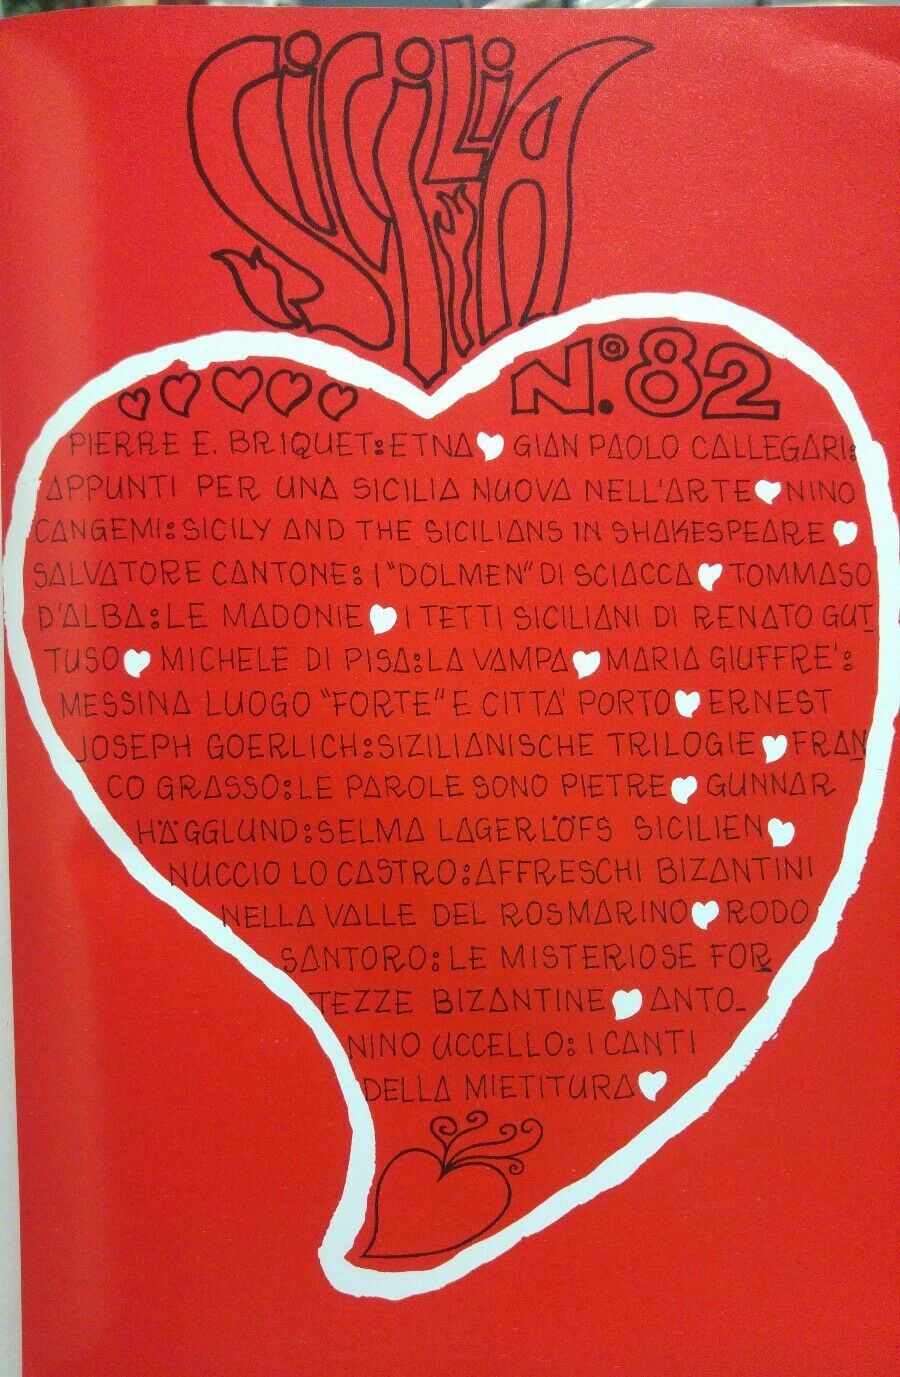 SICILIA
N.º 82
PIERRE E. BRIQUET: ETNA GIAN PAOLO CALLEGARI:
APPUNTI PER UNA SICILIA NUOVA NELL'ARTE NINO
CANGEMI: SICILY AND THE SICILIANS IN SHAKESPEARE
SALVATORE CANTONE: I "DOLMEN" DI SCIACCA TOMMASO
D'ALBA: LE MADONIE I TETTI SICILIANI DI RENATO GUT
TUSO MICHELE DI PISA: LA VAMPA MARIA GIUFFRE':
MESSINA LUOGO "FORTE" E CITTA' PORTO ERNEST
JOSEPH GOERLICH: SIZILIANISCHE TRILOGIE FRAN
CO GRASSO: LE PAROLE SONO PIETRE GUNNAR
HÄGGLUND: SELMA LAGERLÖFS SICILIEN
NUCCIO LO CASTRO: AFFRESCHI BIZANTINI
NELLA VALLE DEL ROSMARINO RODO
SANTORO: LE MISTERIOSE FOR
TEZZE BIZANTINE ANTO-
NINO UCCELLO: I CANTI
DELLA MIETITURA